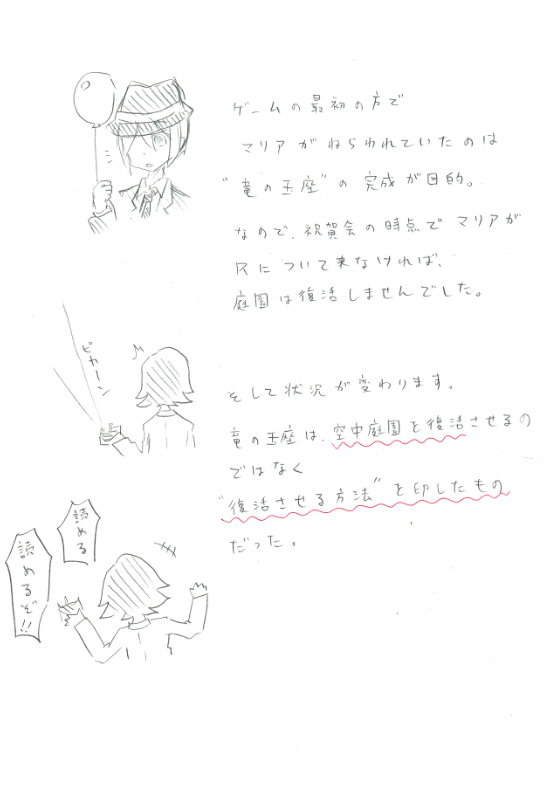 ゲームの最初の方で
マリアがねらわれていたのは
"竜の玉座"の完成が目的。
なので、祝賀会の時点でマリアが
Rについて来なければ、
庭園は復活しませんでした。
ピカーン
そして状況が変わります。
竜の玉座は、空中庭園を復活させるの
ではなく
"復活させる方法"を印したもの
だった。
読める
読めるぞ!!